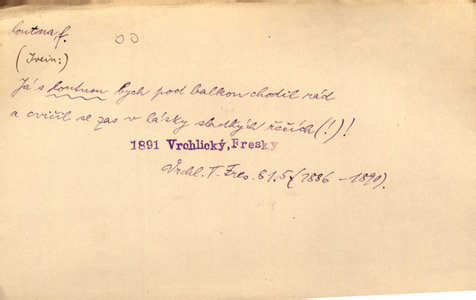 loutna, f.
(Ivein:)
Já s loutnou bych pod balkon chodil rád
a cvičil se zas v lásky sladkých řečích (!)!
1891 Vrchlický, Fresky
Vrchl. V. Fres. 81. 5 (1886 – 1890).